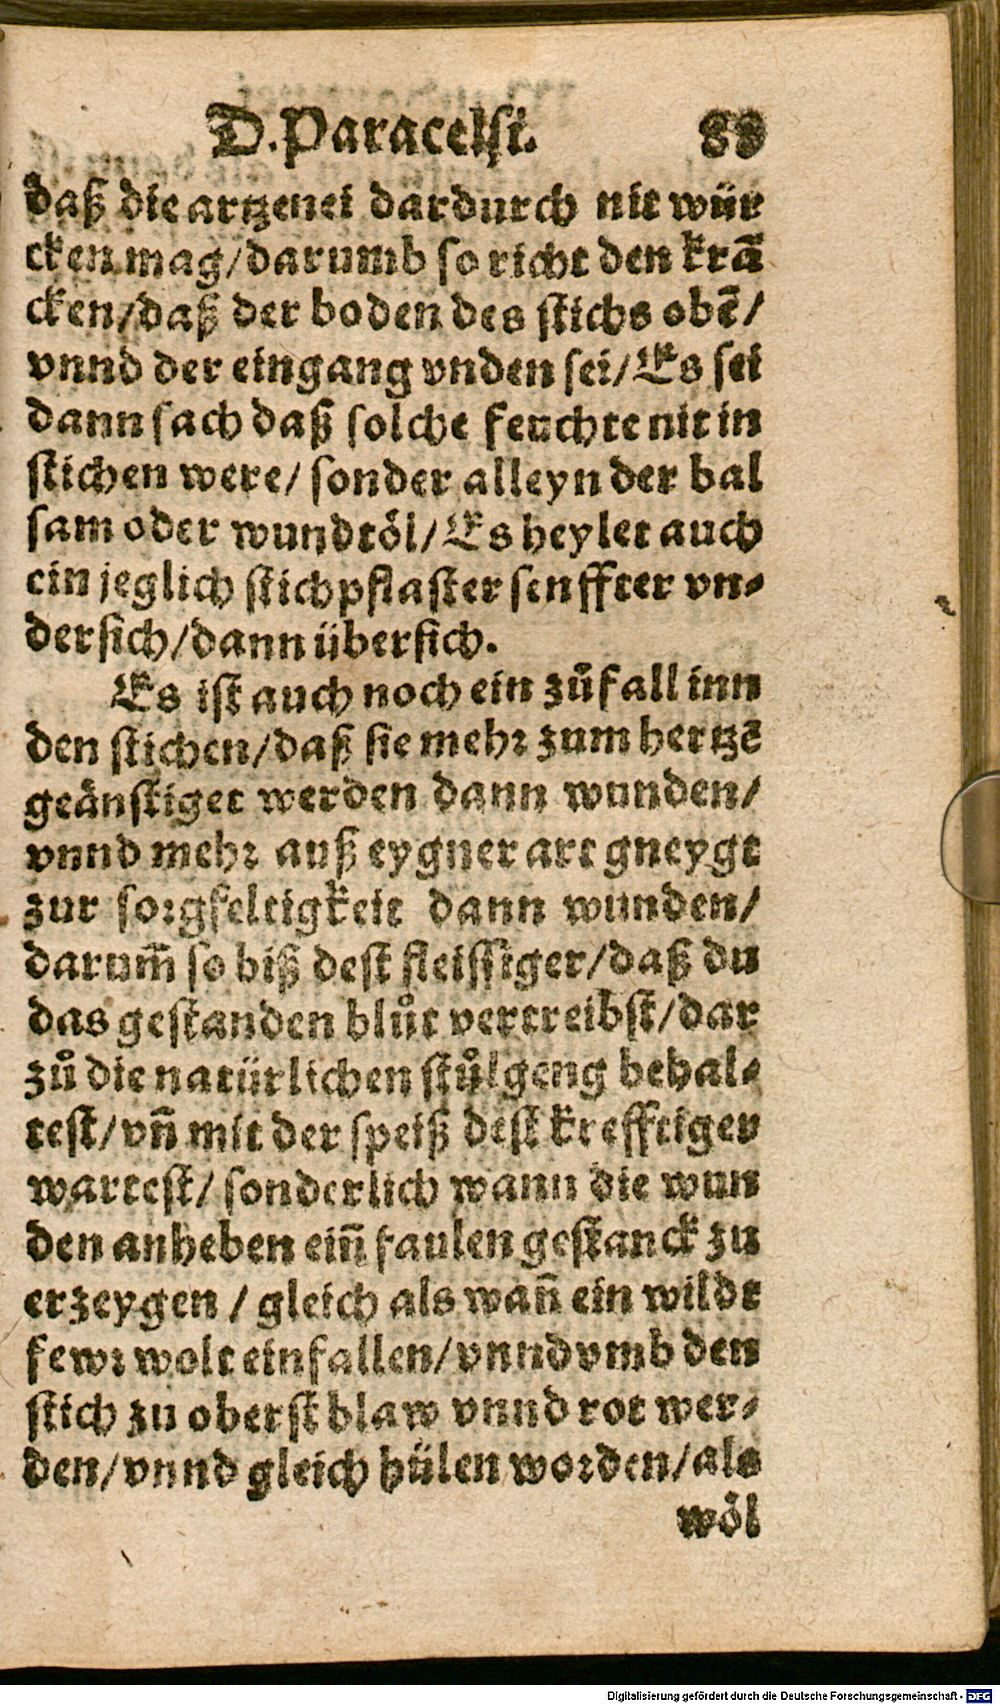 D. Paracelsi. 88
daß die artzenei dardurch nit wür
cken mag/ darumb so richt den krā
cken/ daß der boden des stichs obē/
vnnd der eingang vnden sei/ Es sei
dann sach daß solche feuchte nit in
stichen were/ sonder alleyn der bal
sam oder wundtöl/ Es heylet auch
ein jeglich stichpflaster senffter vn-
dersich/ dann übersich.
Es ist auch noch ein zůfall inn
den stichen/ daß sie mehr zum hertzē
geänstiget werden dann wunden/
vnnd mehr auß eygner art gneygt
zur sorgfeltigkeit dann wunden/
darum̄ so biß dest fleissiger/ daß du
das gestanden blůt vertreibst/ dar
zů die natürlichen stůlgeng behal-
test/ vn̄ mit der speiß dest krefftiger
wartest/ sonderlich wann die wun
den anheben ein̄ faulen gestanck zu
erzeygen / gleich als wan̄ ein wildt
fewr wolt einfallen/ vnnd vmb den
stich zu oberst blaw vnnd rot wer-
den/ vnnd gleich hülen worden/ als
wöl
Digitalisierung gefördert durch die Deutsche Forschungsgemeinschaft - DFG